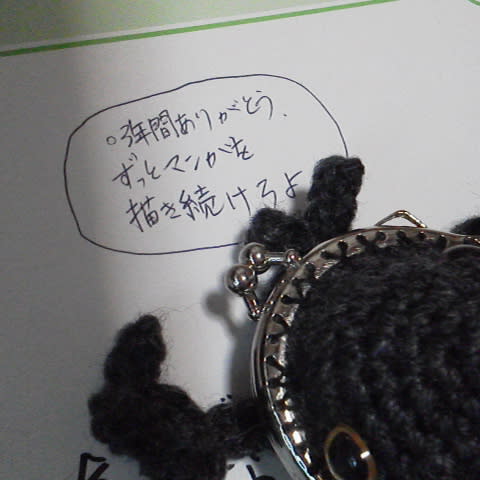 。3年間ありがとう、
ずっとマンガを
描き続けろよ